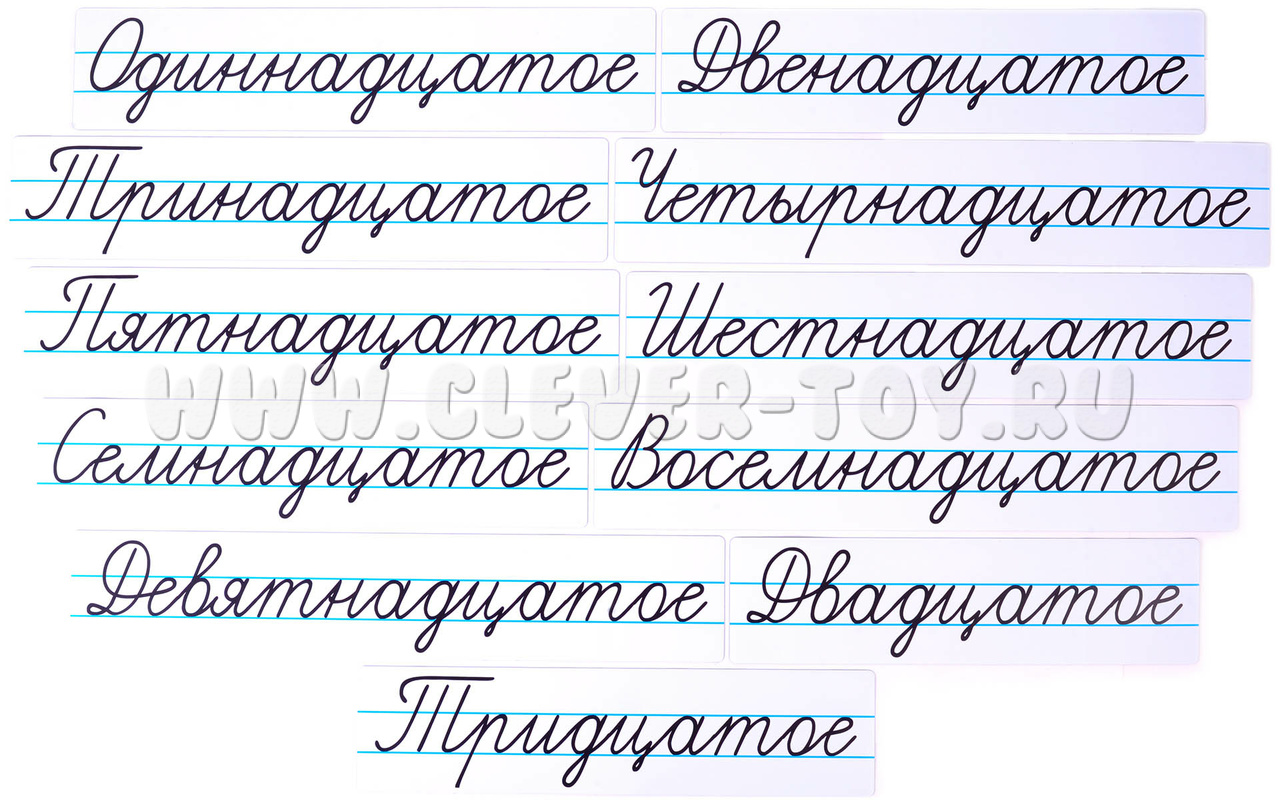 Одиннадцатое Двенадцатое
Тринадцатое Четырнадцатое
Пятнадцатое Шестнадцатое
WWW.CLEVER-TOY.RU
Семнадцатое Восемнадцатое
Девятнадцатое Двадцатое
Тридцатое